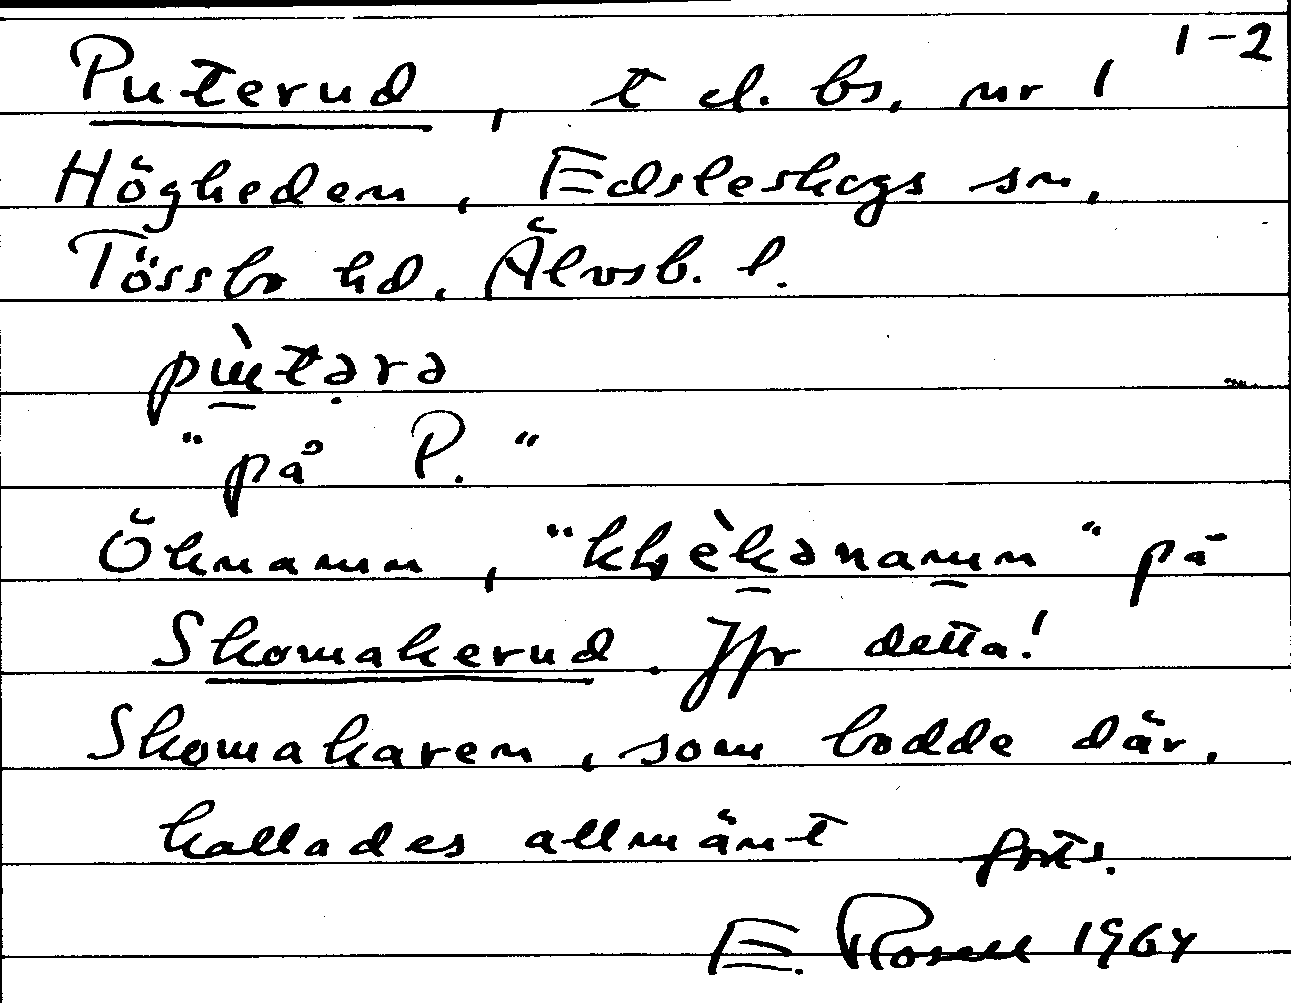 1-2
Puterud, t d. bs. nr 1
Högheden, Edsleskogs sn,
Tössbo hd, Älvsb. l.
pùtərə
"på P."
Öknamn, "kʃɛ̀kənamn" på
Skomakerud. Jfr detta!
Skomakaren, som bodde där,
kallades allmänt forts.
E. Rosell 1964